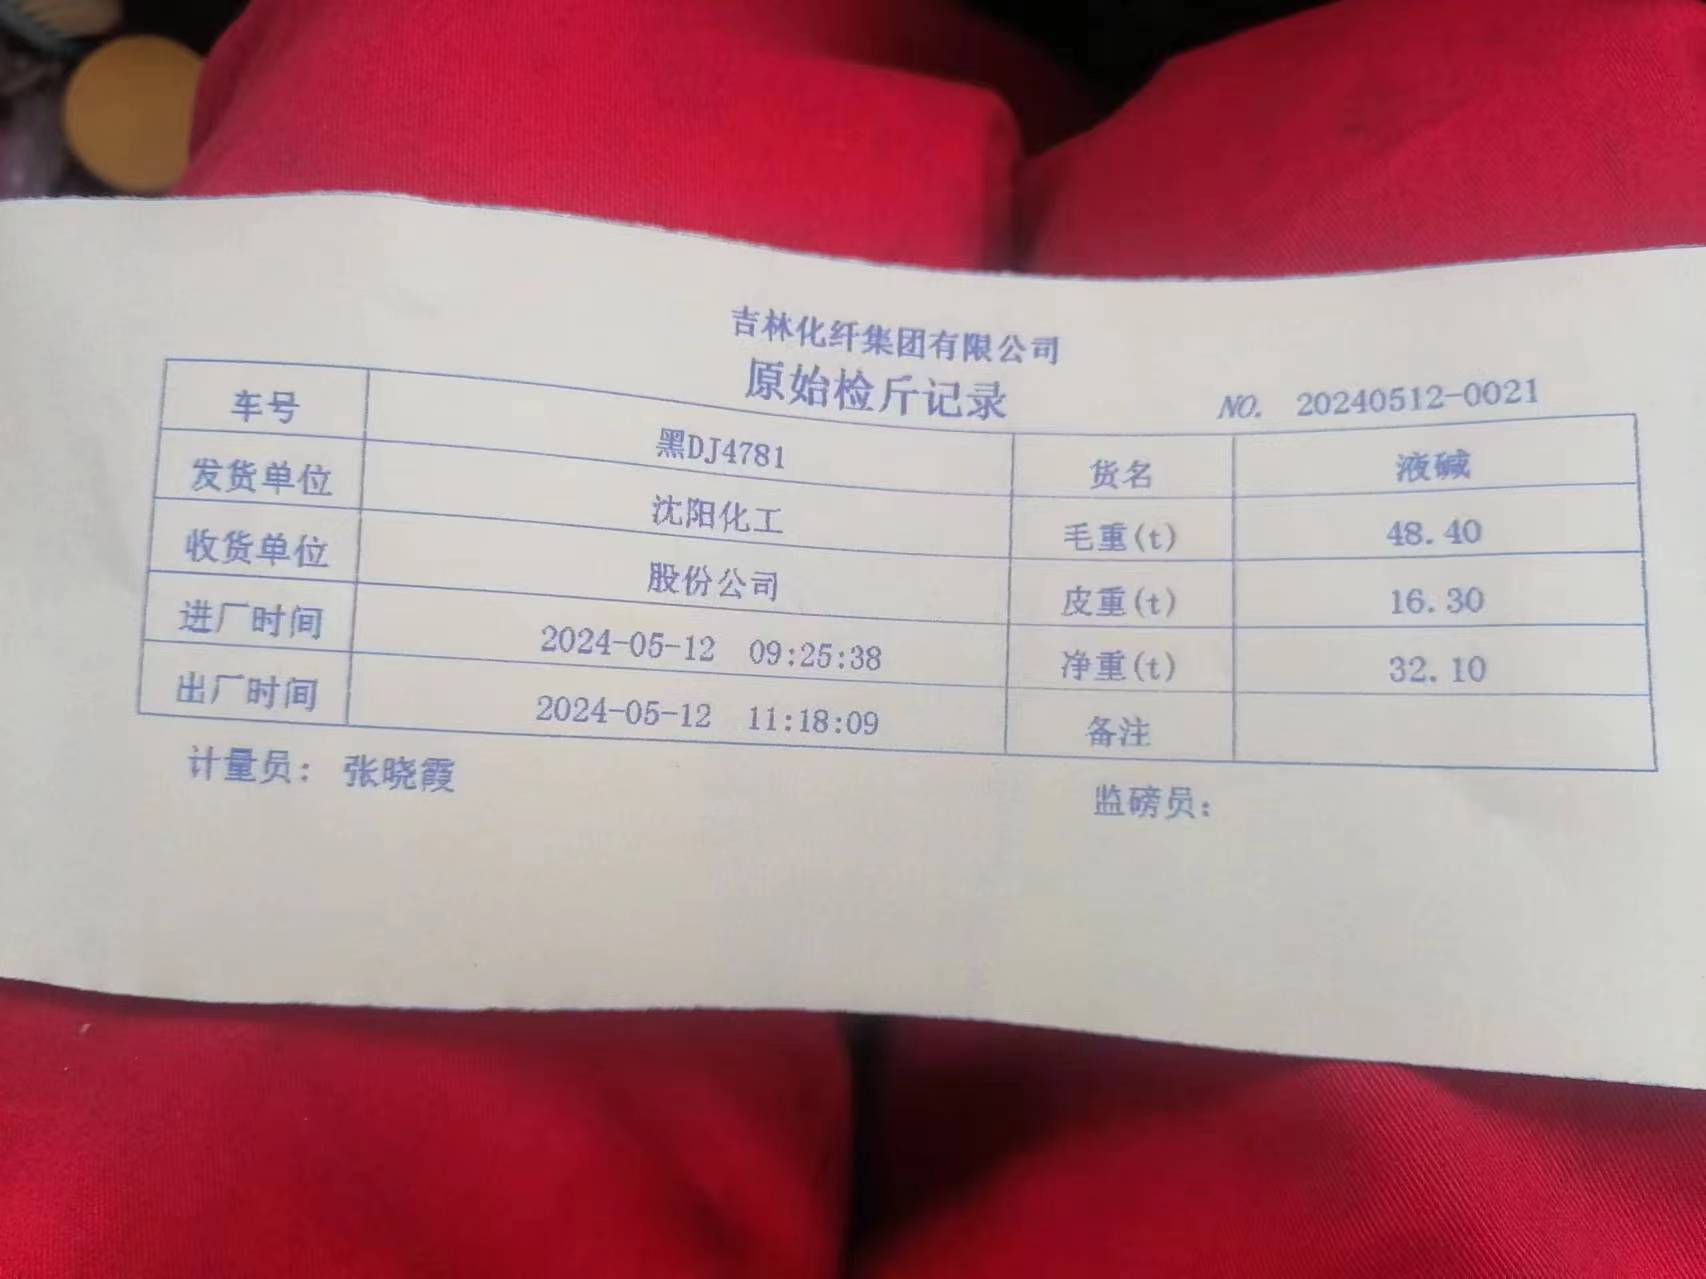 吉林化纤集团有限公司
原始检斤记录
NO. 20240512-0021
车号 黑DJ4781 货名 液碱
发货单位 沈阳化工 毛重(t) 48.40
收货单位 股份公司 皮重(t) 16.30
进厂时间 2024-05-12 09:25:38 净重(t) 32.10
出厂时间 2024-05-12 11:18:09 备注
计量员: 张晓霞 监磅员: